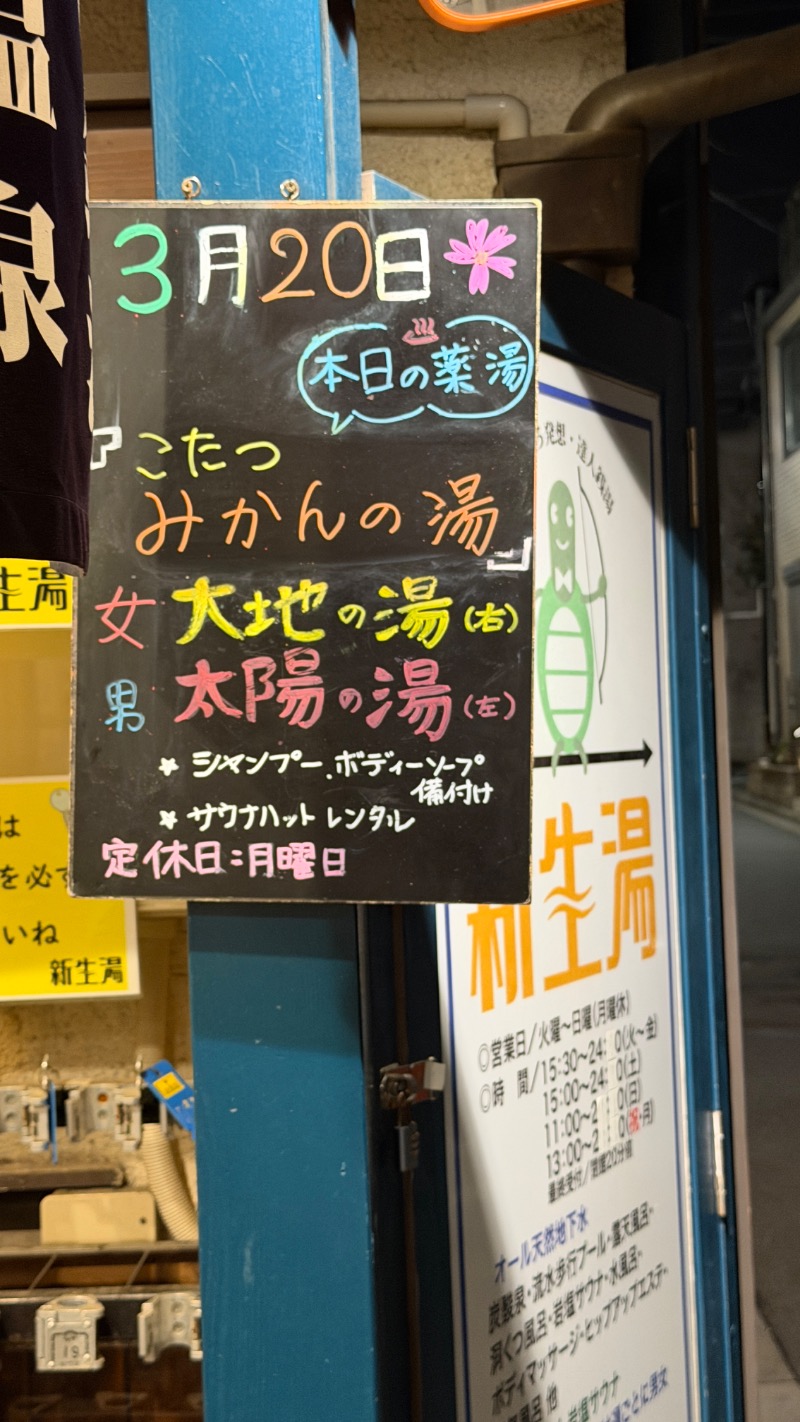 温
泉
3月20日
本日の薬湯
『こたつ
みかんの湯』
女 大地の湯(右)
男 太陽の湯(左)
* シャンプー、ボディーソープ
備付け
* サウナハット レンタル
定休日:月曜日
生湯
は
を必ず
いね
新生湯
発想・達人
新生湯
◎営業日/火曜〜日曜(月曜休)
◎時 間/15:30〜24: 0(火〜金)
15:00〜24: 0(土)
11:00〜2 0(日)
13:00〜2 0(祝・月)
最終受付/閉館20分前
オール天然地下水
炭酸泉・流水歩行プール・露天風呂・
洞くつ風呂・岩塩サウナ・水風呂・
ボディマッサージ・ヒップアップエステ・
風呂 他
岩塩サウナ
ごとに男女
19